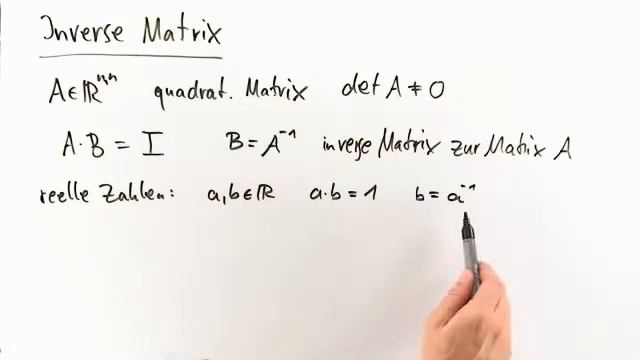 Inverse Matrix
A∈ℝⁿˣⁿ quadrat. Matrix det A ≠ 0
A·B = I B = A⁻¹ inverse Matrix zur Matrix A
reelle Zahlen: a,b∈ℝ a·b = 1 b = a⁻¹